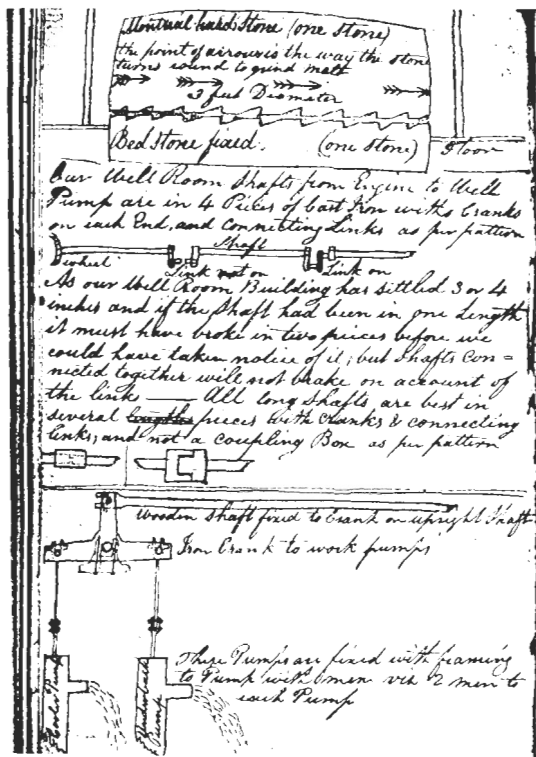 Montreal hard Stone (one Stone)
the point of arrows is the way the stone
turns round to grind malt
3 feet Diameter
Bed Stone fixed. (one Stone) Floor
Our Well Room Shafts from Engine to Well
Pump are in 4 Pieces of Cast Iron with Cranks
on each End, and Connecting Links as per pattern
Shaft
wheel Link not on Link on
As our Well Room Building has settled 3 or 4
inches and if the Shaft had been in one Length
it must have broke in two pieces before we
could have taken notice of it; but Shafts con=
nected together will not brake on account of
the link — All long Shafts are best in
several lengths pieces with Cranks & connecting
links, and not a Coupling Box as per pattern
Wooden Shaft fixed to Crank on upright Shaft
Iron Crank to work pumps
These Pumps are fixed with framing
to Pump with 6 men viz 2 men to
each Pump
Pump
Underback
Pump